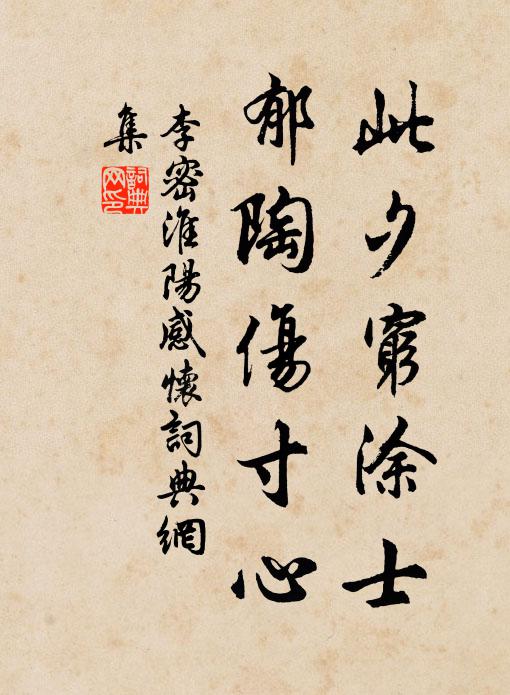 此夕窮涂士
郁陶傷寸心
李密淮陽感懷詞典網
集
詞典
网印